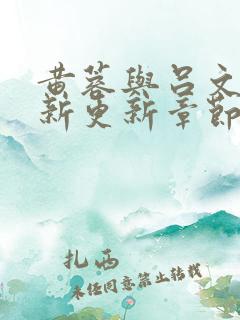 黄蓉與呂文
新更新章節
扎西
未经同意禁止转载